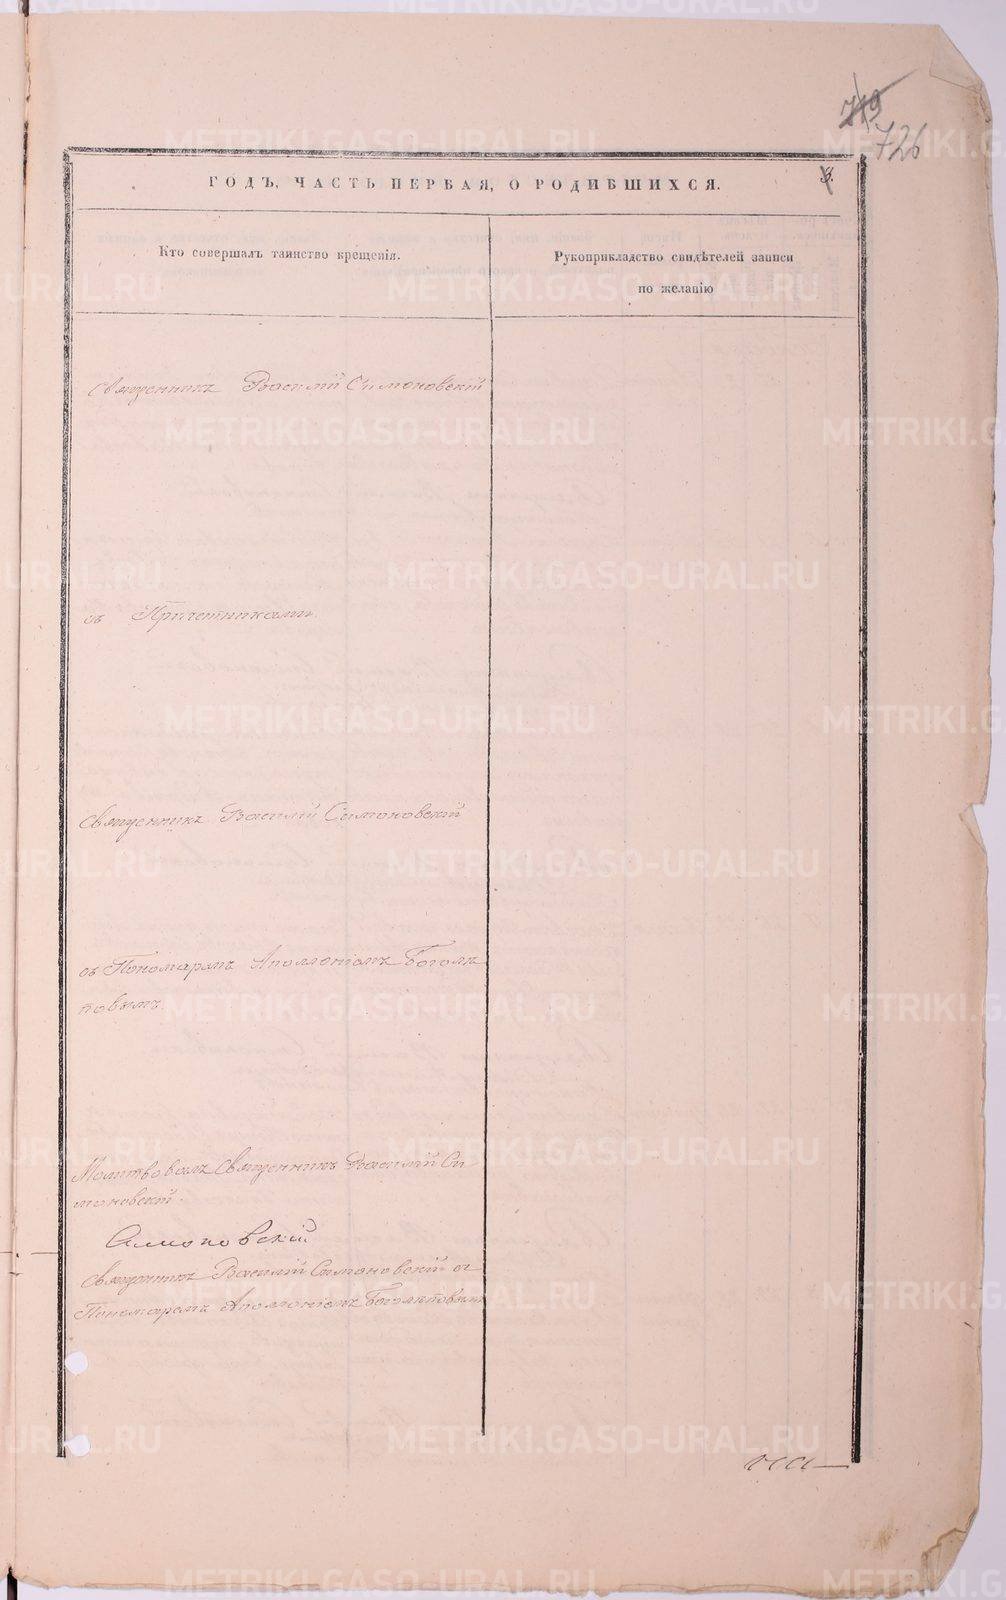 719
726
ГОДЪ, ЧАСТЬ ПЕРВАЯ, О РОДИВШИХСЯ.
3.
Кто совершалъ таинство крещенія.
Рукоприкладство свидѣтелей записи
по желанію
Священникъ Василій Симоновскій
съ Причетниками.
Священникъ Василій Симоновскій
съ Пономаремъ Аполлоніемъ Боголѣ
повымъ
Молитвовалъ Священникъ Василій Си
моновскій.
Симоновскій
Священникъ Василій Симоновскій съ
Пономаремъ Аполлоніемъ Боголѣповымъ
METRIKI.GASO-URAL.RU